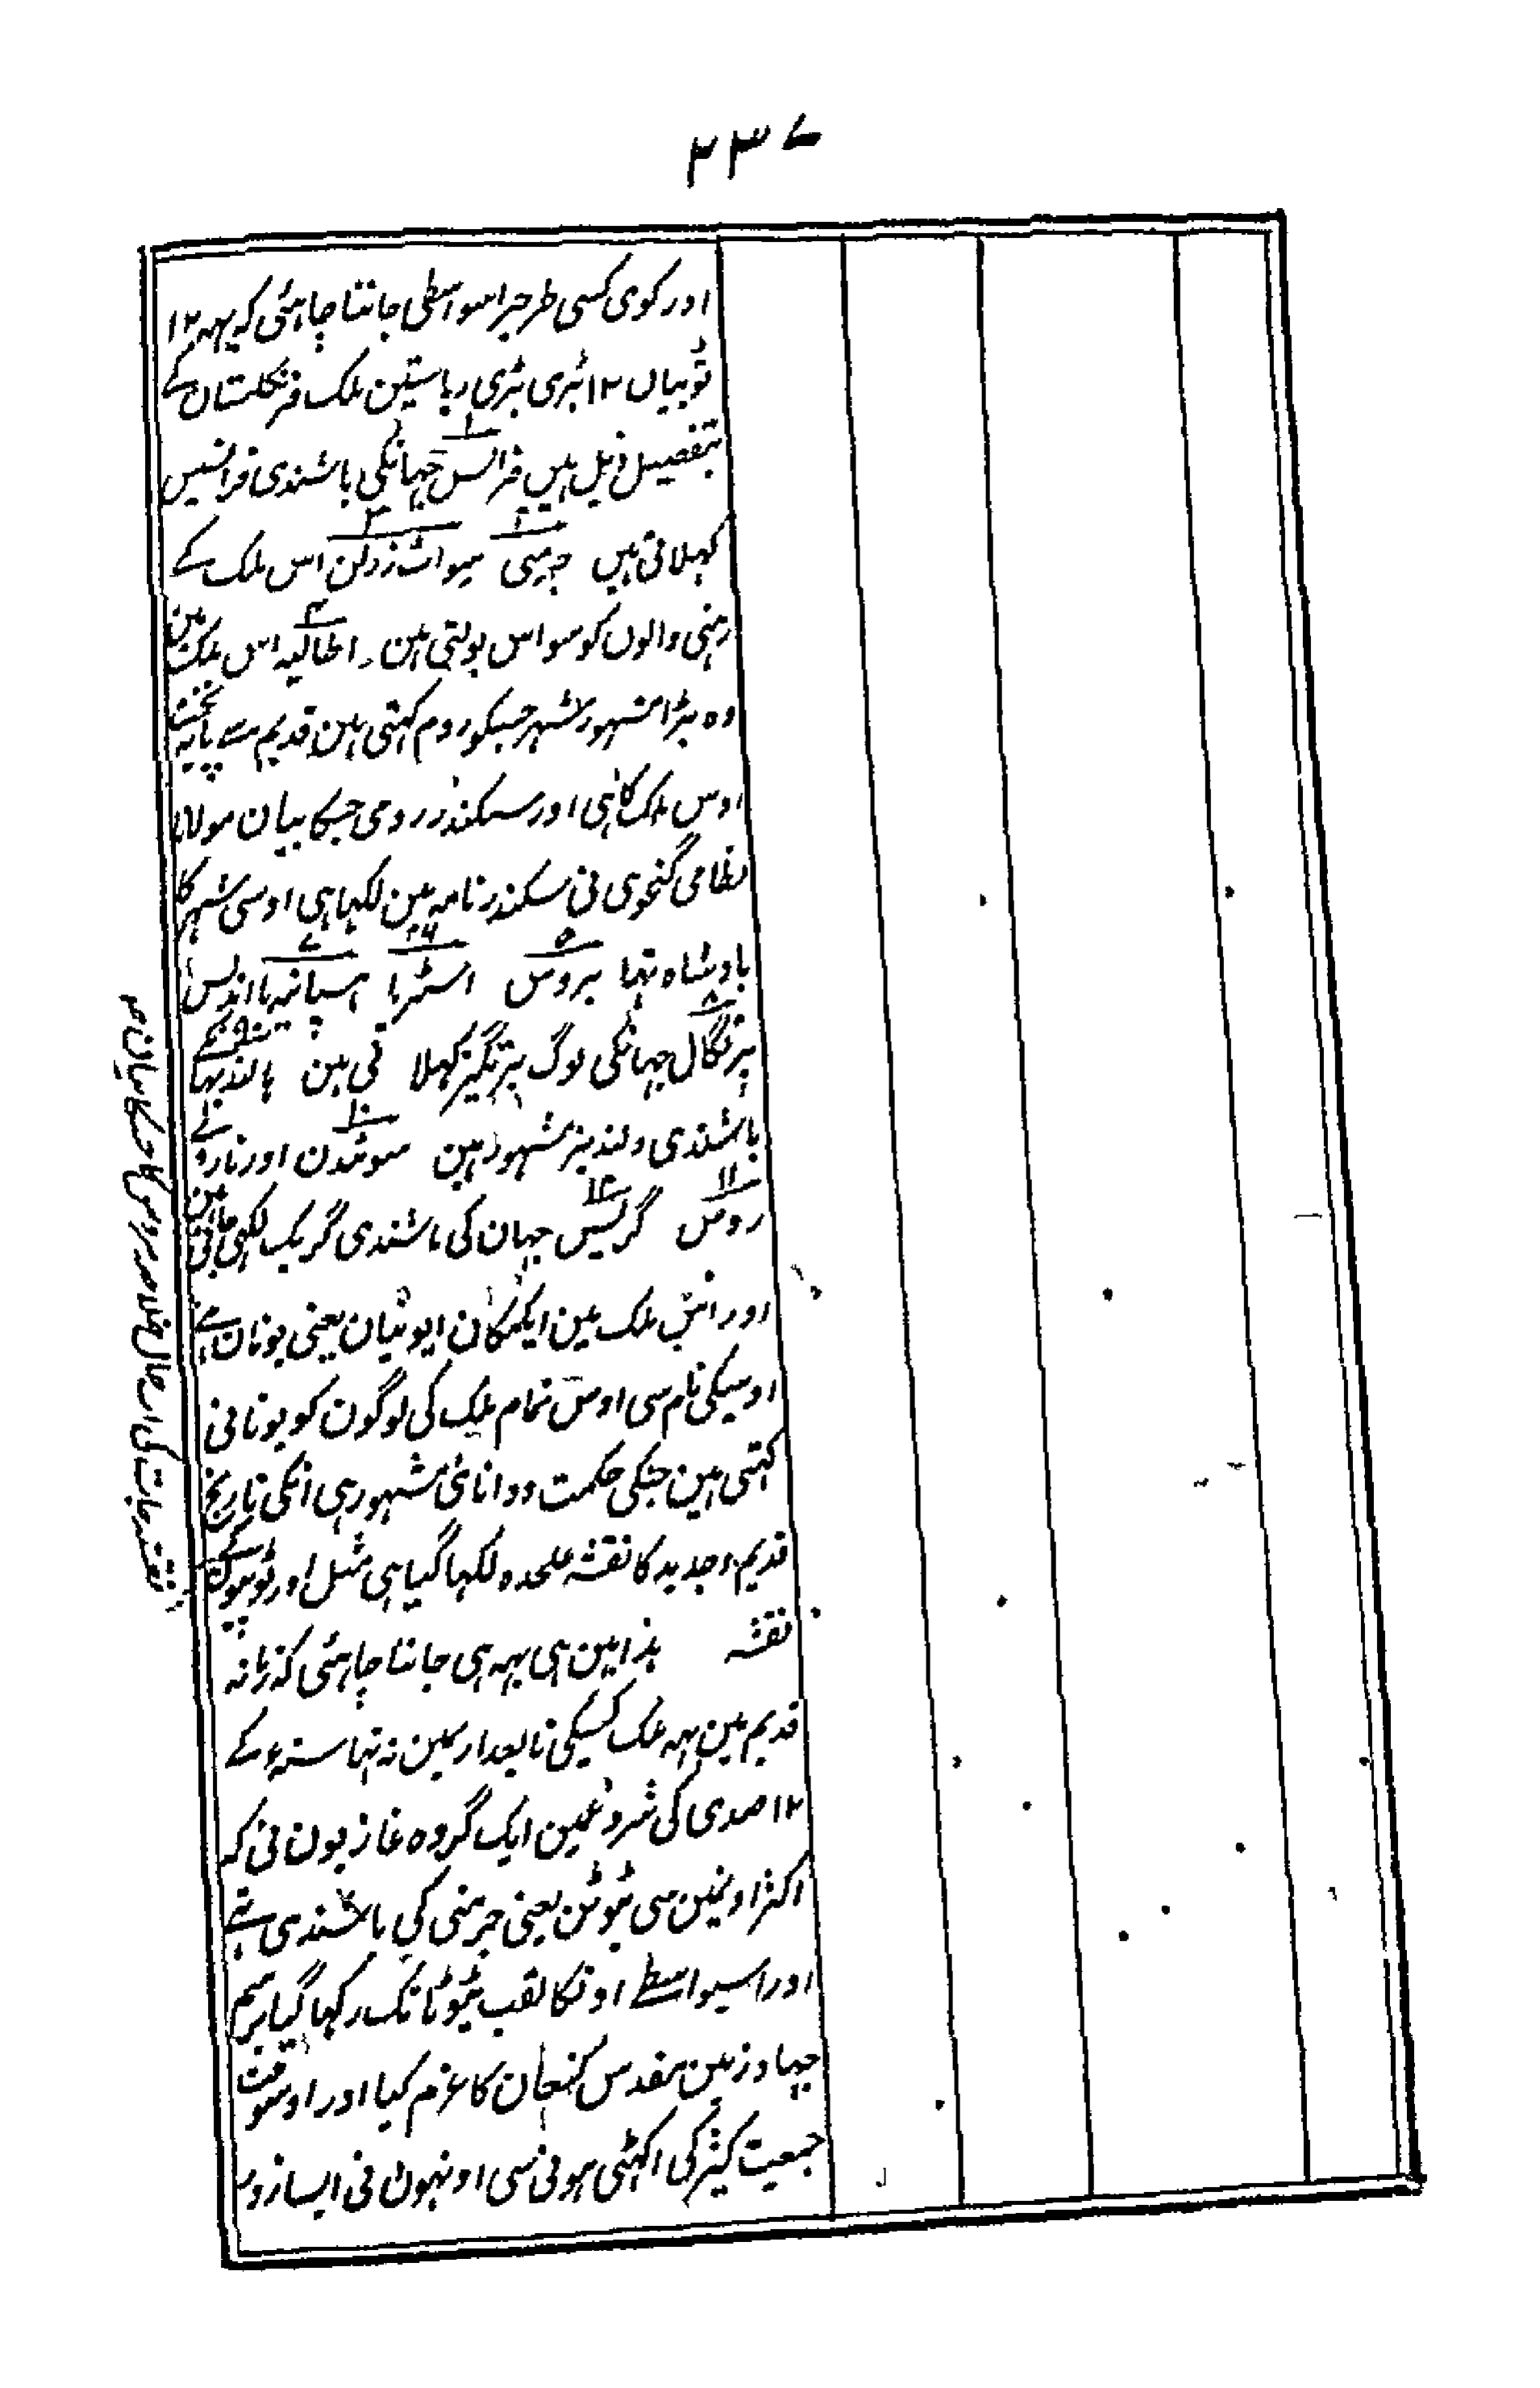 ۲۳۷
اور کوی کسی طرحپر اسواسطی جاننا چاہئی کہ یہہ ۱۲
ٹوپیاں ۱۲ بڑی بڑی ریاستین ملک فرنگستان کے
بتفصیل ذیل ہیں فرانس جہانکی باشندی فرانسیس
۱
کہلاتی ہیں جرمنی سوائٹزرلن اس ملک کے
۲ ۳
رہنی والوں کو سواس بولتی ہین۔ اطالیہ اس ملک مین
۴
وہ بڑا مشہور شہر جسکو روم کہتی ہین قدیم سے پایہ تخت
اوس ملک کا ہی اور سکندر رومی جسکا بیان مولانا
نظامی گنجوی نی سکندر نامہ مین لکہا ہی اوسی شہر کا
بادشاہ تہا پروس اسٹریا ہسپانیہ یا اندلس
۵ ۶ ۷
پرتگال جہانکی لوگ پرتگیز کہلا تی ہین ہالنڈ جہانکے
۸ ۹
باشندی ولندیز مشہور ہین سوئڈن اور ناروے
۱۰
روس گریس جہان کی باشندی گریک لکہی جاتی ہین
۱۱ ۱۲
اور اس ملک مین ایکمکان ایونیان یعنی یونان ہے
اوسیکی نام سی اوس تمام ملک کی لوگون کو یونانی
کہتی ہین جنکی حکمت و دانائی مشہور ہی انکی تاریخ
قدیم و جدید کا نقشہ علحدہ لکہا گیا ہی مثل اور ٹوپیوں کے
نقشہ ہذا مین ہی یہہ ہی جاننا چاہئی کہ زمانہ
قدیم مین یہہ ملک کسیکی تابعداریمین نہ تہا سنہ ء کے
۱۲ صدی کی شروعمین ایک گروہ غازیون نی کہ
اکثر اونمین سی ٹیوٹن یعنی جرمنی کی باشندی تہے
اور اسیواسطے اونکا لقب ٹیوٹانک رکہا گیا برسم
جہاد زمین مقدس کنعان کا عزم کیا اور اوسوقت
جمعیت کثیر کی اکہٹی ہونی سی اونہون نی ایسا زور